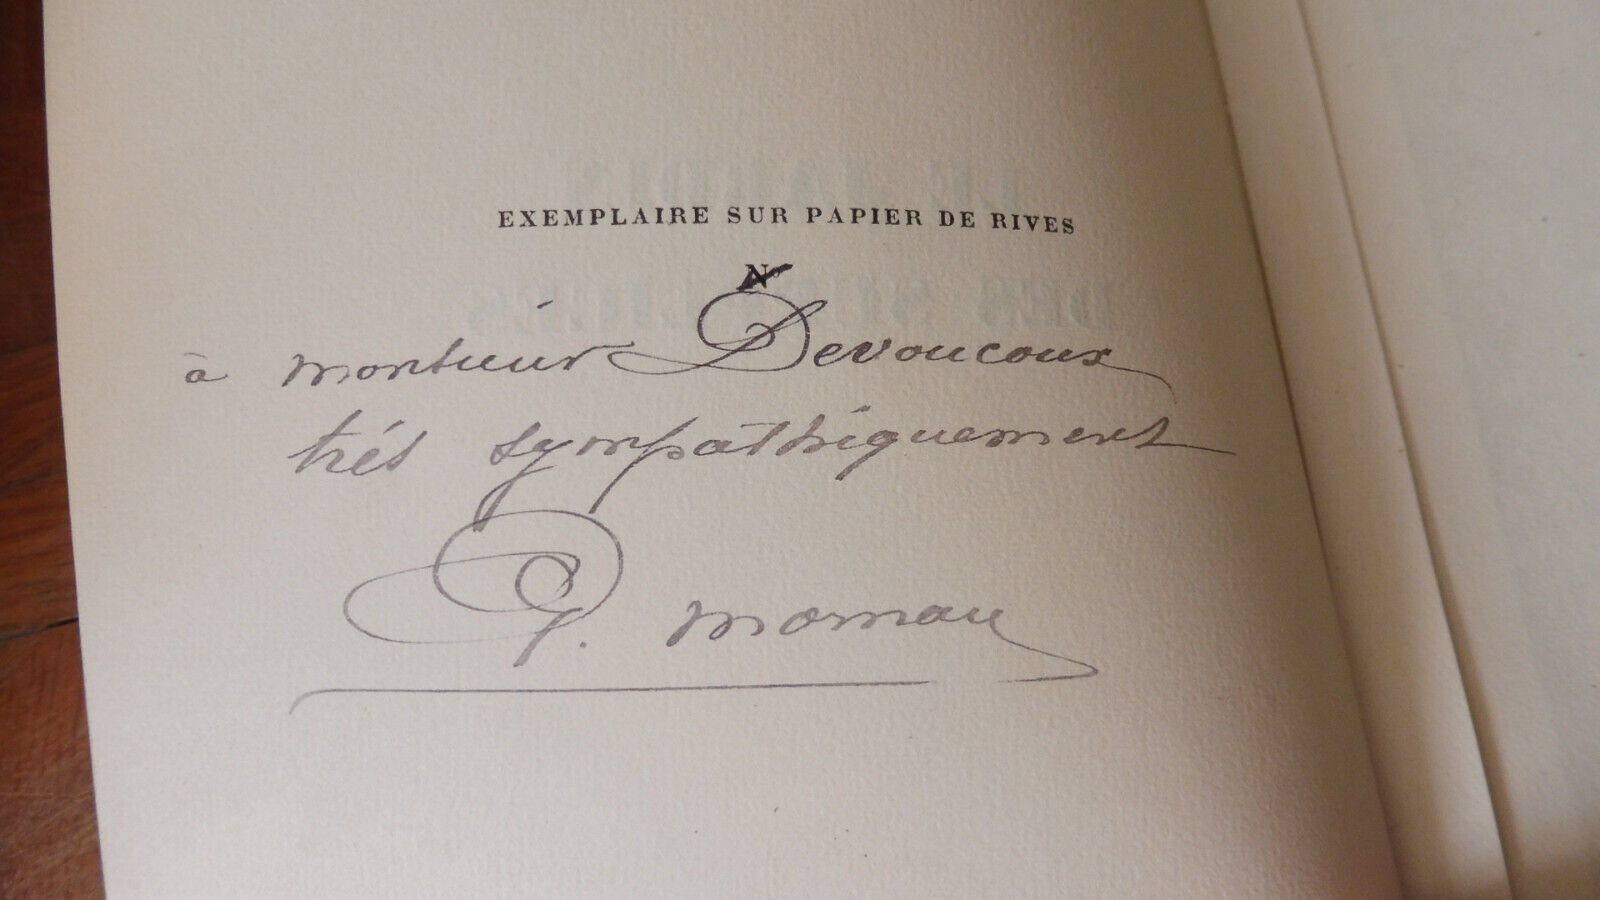 EXEMPLAIRE SUR PAPIER DE RIVES
N°
à monsieur Devoucoux
très sympathiquement
G. mornau